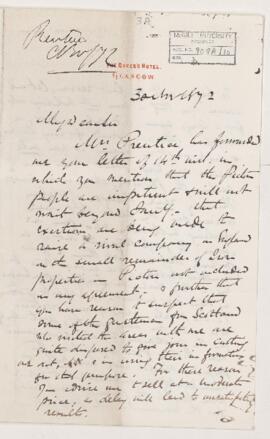 3A
McGILL UNIVERSITY
ACC. NO.
THE QUEEN'S HOTEL,
GLASGOW
1872
My dear Sir
Mrs Prentice has forwarded
me your letter of 14th inst. in
which you mention that the Pictou
people are impatient & will not
wait beyond that
exertions are being made to
raise a rival company in England
with small remainders of Iron
properties in Pictou not included
in my agreement, & further that
you have reason to suspect that
some of the gentlemen from Scotland
who visited the areas with me are
quite disposed to give you in cutting
me out, & in using their information
for that purpose. For these reasons
I'm advise me to sell at a moderate
price, as delay will lead to unsatisfactory
result.